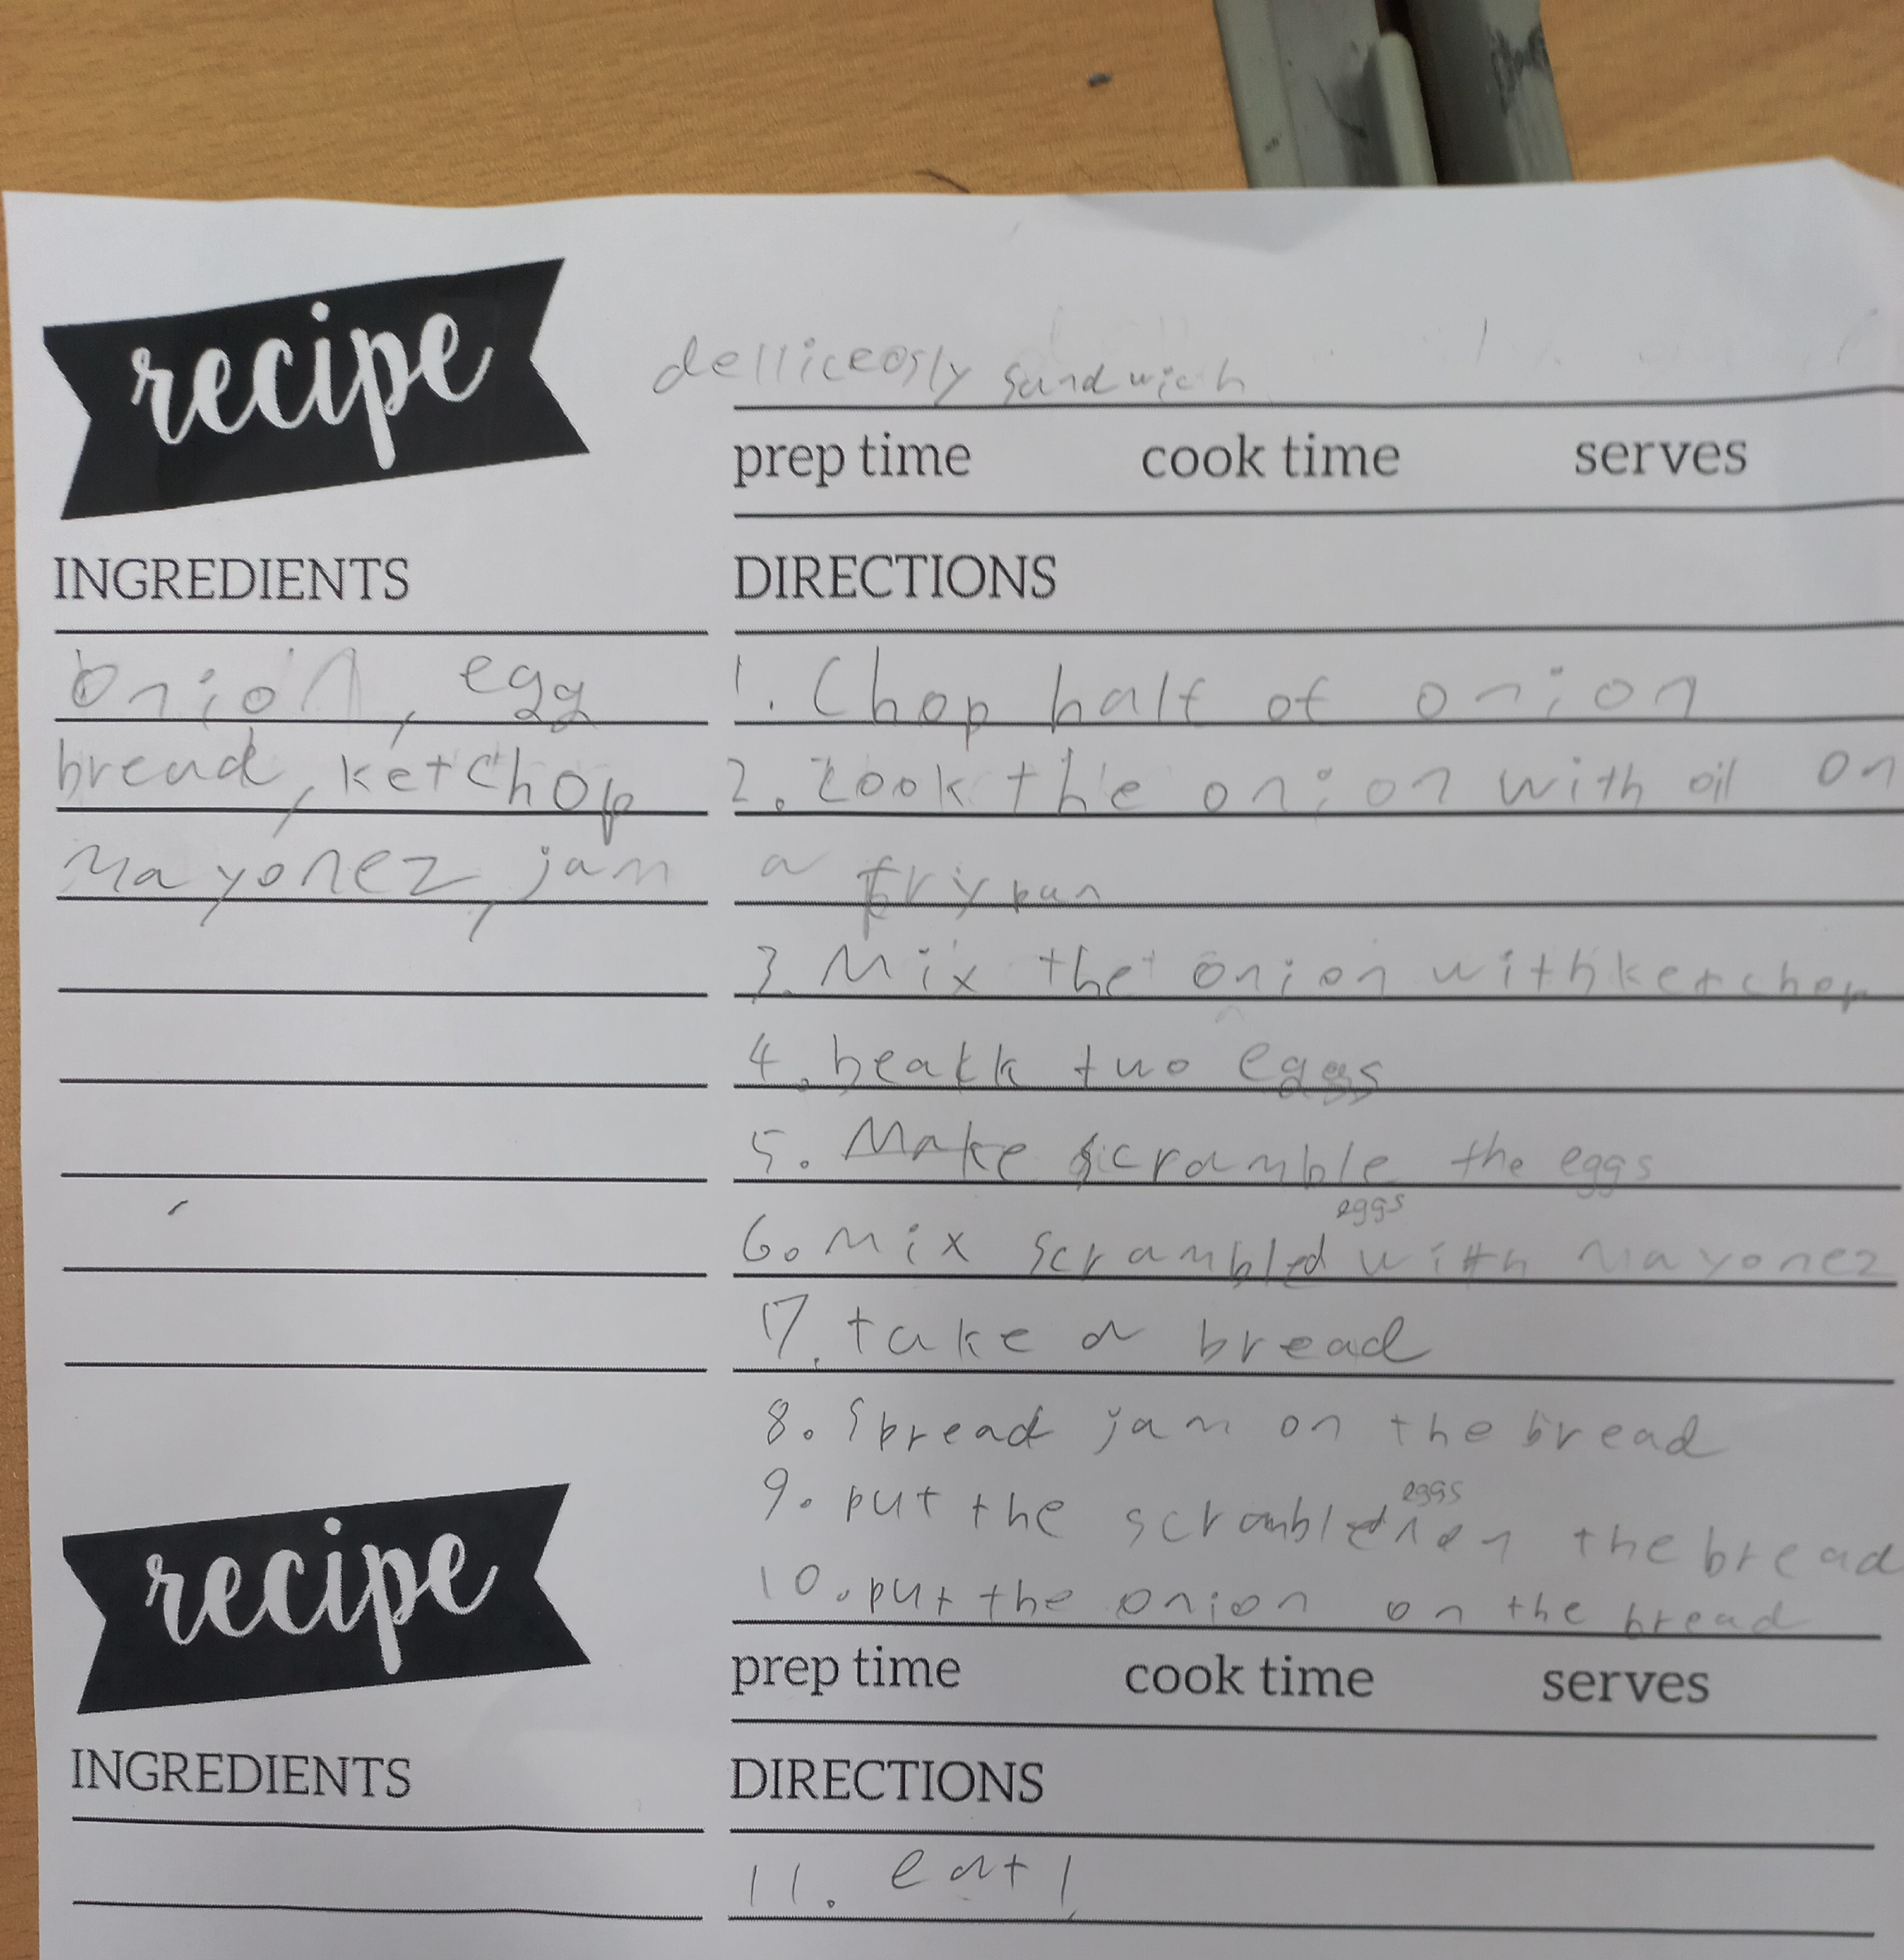 recipe
delliceosly sandwich
prep time cook time serves
INGREDIENTS
onion, egg
bread, ketchop
Mayonez, jam
DIRECTIONS
1. Chop half of onion
2. Cook the onion with oil on
a frypan
3. Mix the onion with ketchop
4. beatk two eggs
5. Make scramble the eggs
6. Mix scrambled eggs with Mayonez
7. take a bread
8. Spread jam on the bread
9. put the scrambled eggs on the bread
10. put the onion on the bread
recipe
prep time cook time serves
INGREDIENTS
DIRECTIONS
11. eat!